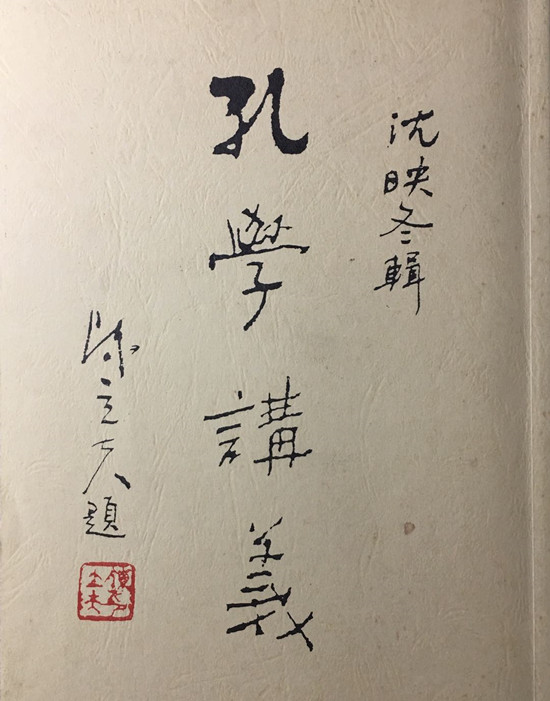 沈映冬輯
孔學講義
陳立夫題